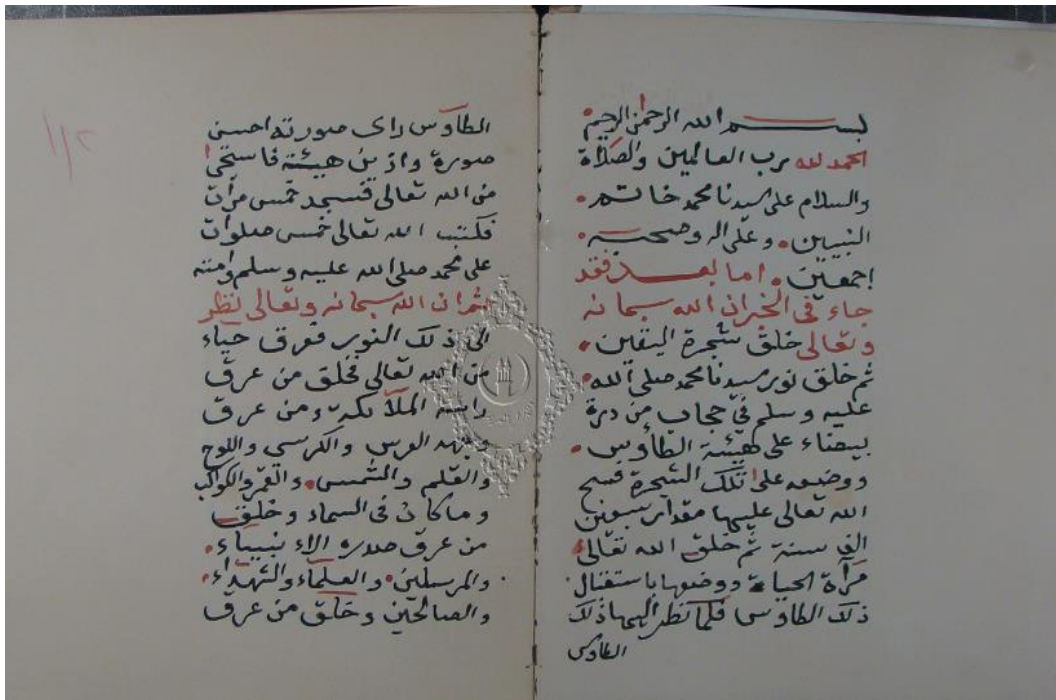 بسم الله الرحمن الرحيم
الحمد لله رب العالمين والصلاة
والسلام على سيدنا محمد خاتم
النبيين وعلى اله وصحبه
اجمعين اما بعد فقد
جاء في الخبر ان الله سبحانه
وتعالى خلق شجرة اليقين
ثم خلق نور سيدنا محمد صلى الله
عليه وسلم في حجاب من درة
بيضاء على هيئة الطاوس
ووضعه على تلك الشجرة فسبح
الله تعالى عليها مقدار سبعين
الف سنة ثم خلق الله تعالى
مرآة الحياة ووضعها باستقبال
ذلك الطاوس فلما نظر اليها ذلك
الطاوس
الطاوس راى صورته احسن
صورة وازين هيئة فاستحى
من الله تعالى فسجد خمس مرات
فكتب الله تعالى خمس صلوات
على محمد صلى الله عليه وسلم وامته
ثم ان الله سبحانه وتعالى نظر
الى ذلك النور فعرق حياء
من الله تعالى فخلق من عرق
راسه الملآئكة ومن عرق
وجهه العرش والكرسي واللوح
والقلم والشمس والقمر والكواكب
وما كان في السماء وخلق
من عرق صدره الانبياء
والمرسلين والعلماء والشهداء
والصالحين وخلق من عرق